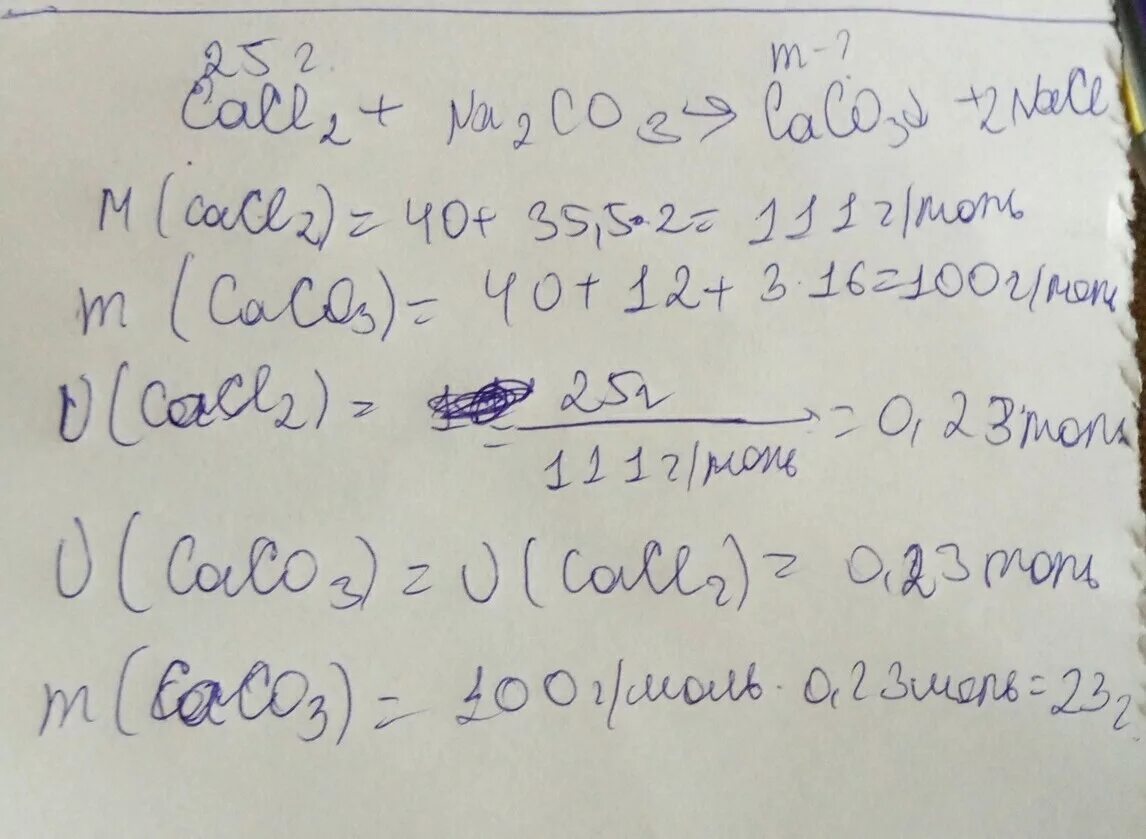 25 г. m-?
CaCl2 + Na2CO3 → CaCO3↓ +2NaCl
M (CaCl2) = 40+ 35,5·2= 111 г/моль
m (CaCO3) = 40+12+3·16=100 г/моль
υ(CaCl2) = = 25г / 111 г/моль = 0,23 моль
υ(CaCO3) = υ(CaCl2) = 0,23 моль
m(CaCO3) = 100 г/моль · 0,23 моль = 23 г